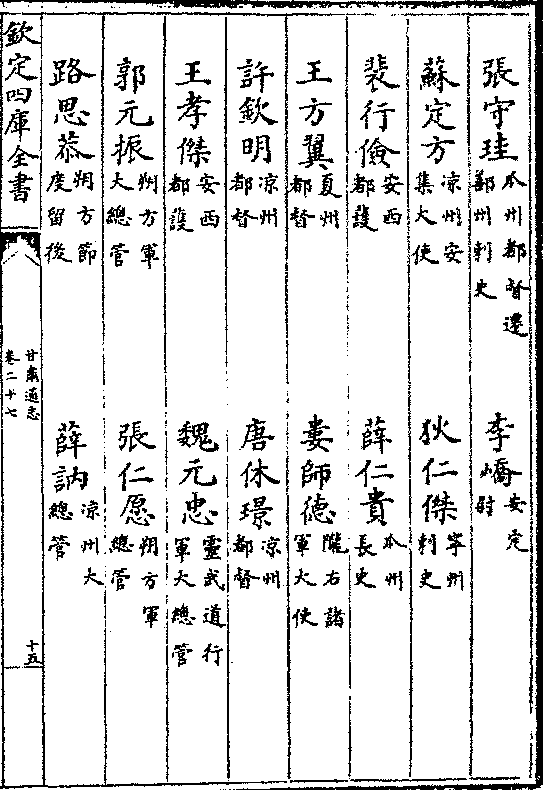 張守珪 瓜州都督遷鄯州刺史 李嶠 安定尉
蘇定方 凉州安集大使 狄仁傑 寧州刺史
裴行儉 安西都護 薛仁貴 瓜州長史
王方翼 夏州都督 婁師德 隴右諸軍大使
許欽明 凉州都督 唐休璟 凉州都督
王孝傑 安西都護 魏元忠 靈武道行軍大總管
郭元振 朔方軍大總管 張仁愿 朔方軍總管
路思恭 朔方節度留後 薛訥 凉州大總管
欽定四庫全書
甘肅通志
卷二十七
十五